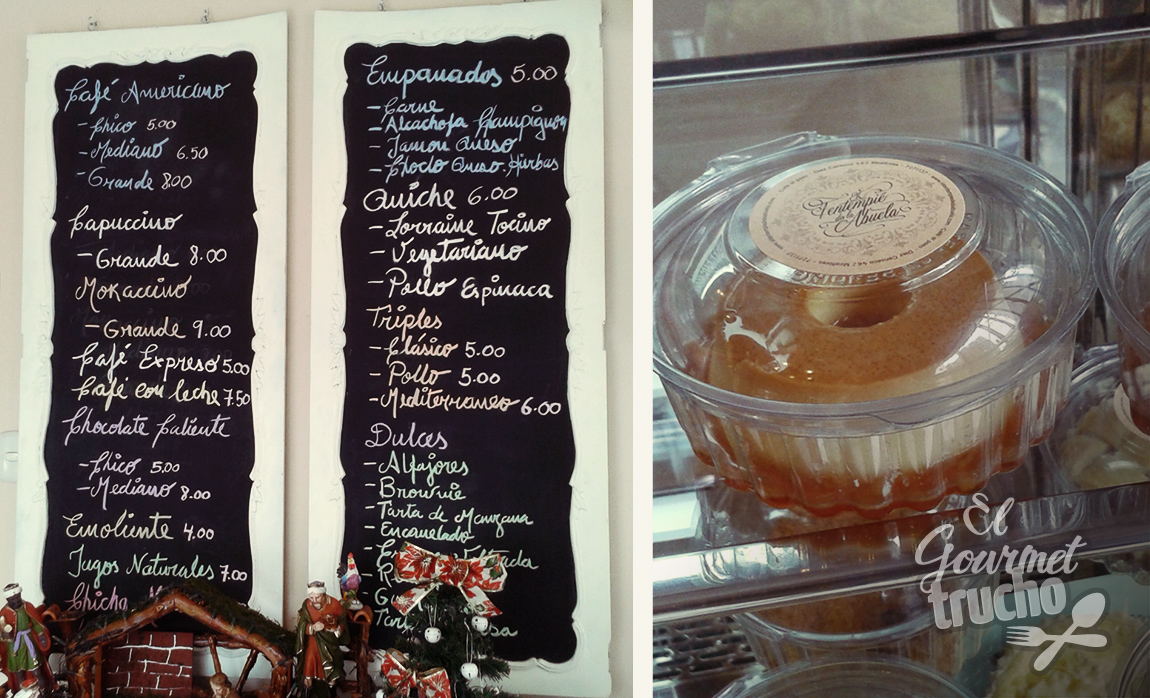 Café Americano
- Chico 5.00
- Mediano 6.50
- Grande 8.00
Capuccino
- Grande 8.00
Mokaccino
- Grande 9.00
Café Expreso 5.00
Café con leche 7.50
Chocolate Caliente
- Chico 5.00
- Mediano 8.00
Emoliente 4.00
Jugos Naturales 7.00
Chicha
Empanadas 5.00
- Carne
- Alcachofa Champignon
- Jamon Queso
- Choclo Queso Hierbas
Quiche 6.00
- Lorraine Tocino
- Vegetariano
- Pollo Espinaca
Triples
- Clásico 5.00
- Pollo 5.00
- Mediterraneo 6.00
Dulces
- Alfajores
- Brownie
- Tarta de Manzana
- Encanelado
Tentempié
de la
Abuela
El
Gourmet
trucho